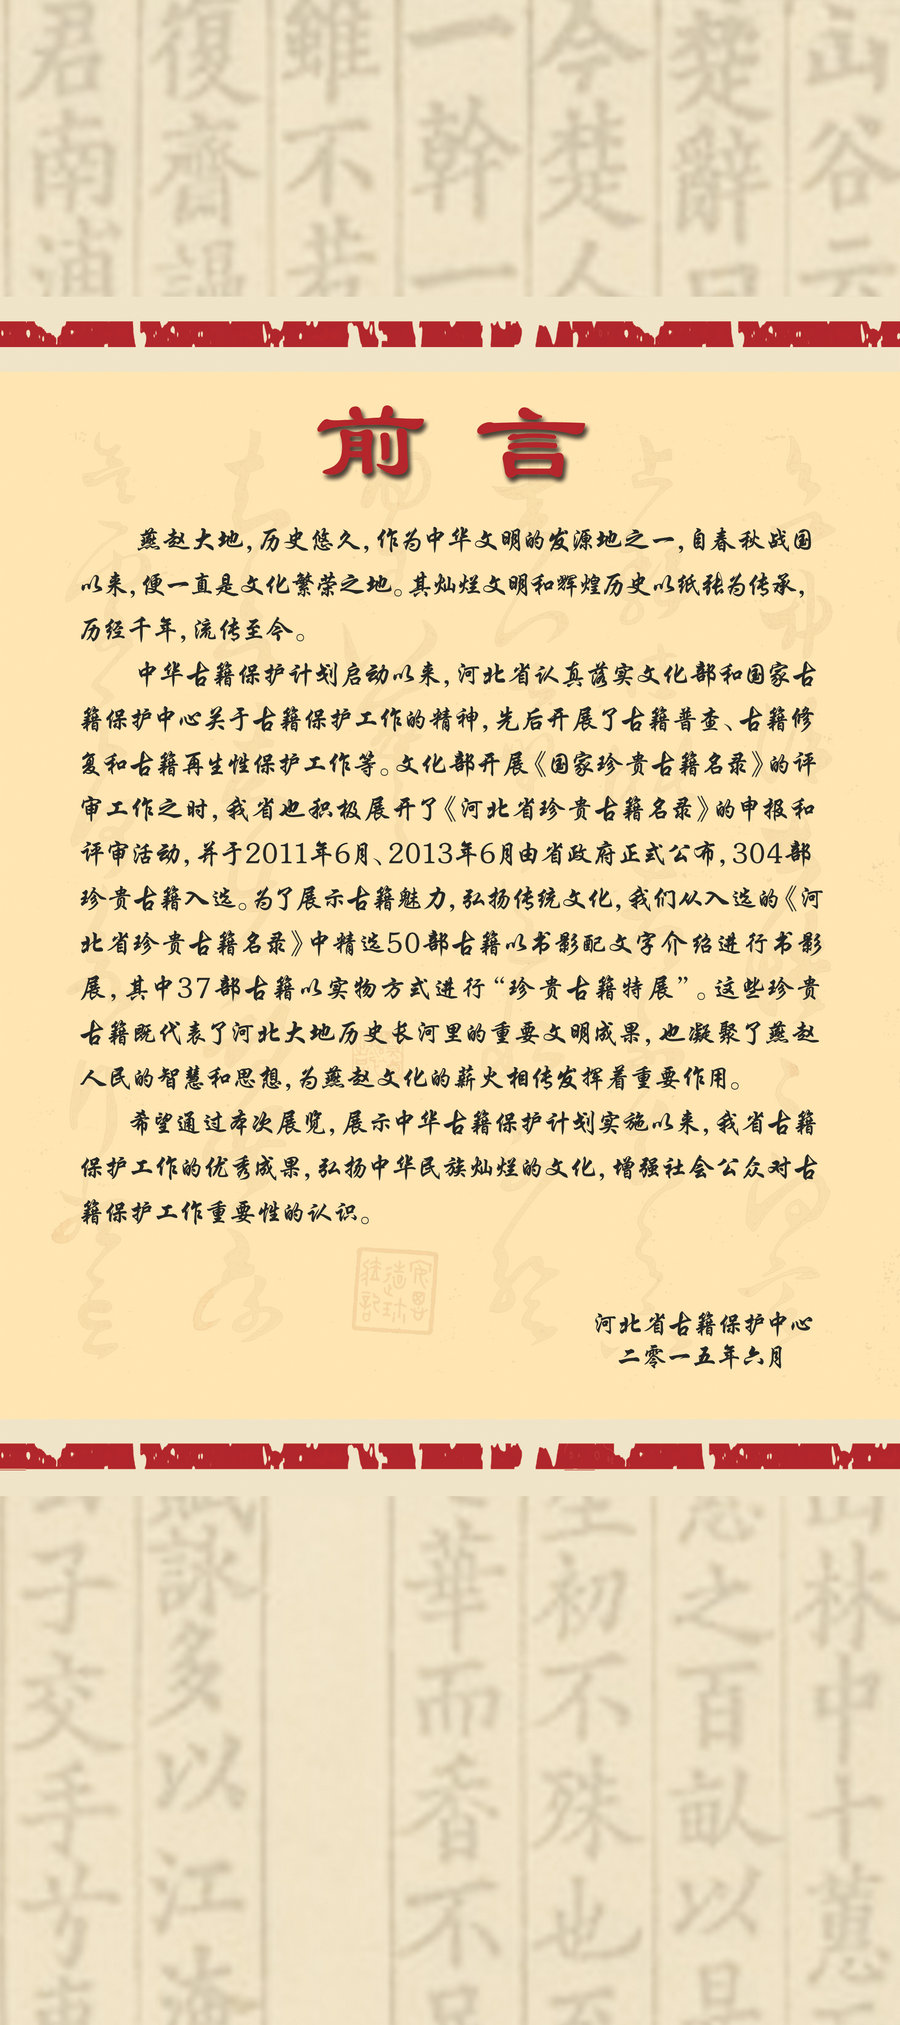 山谷云
楚辞曰
今楚人
一幹一
雖不若
復齋謾
君南浦
前言
燕赵大地,历史悠久,作为中华文明的发源地之一,自春秋战国
以来,便一直是文化繁荣之地。其灿烂文明和辉煌历史以纸张为传承,
历经千年,流传至今。
中华古籍保护计划启动以来,河北省认真落实文化部和国家古
籍保护中心关于古籍保护工作的精神,先后开展了古籍普查、古籍修
复和古籍再生性保护工作等。文化部开展《国家珍贵古籍名录》的评
审工作之时,我省也积极展开了《河北省珍贵古籍名录》的申报和
评审活动,并于2011年6月、2013年6月由省政府正式公布,304部
珍贵古籍入选。为了展示古籍魅力,弘扬传统文化,我们从入选的《河
北省珍贵古籍名录》中精选50部古籍以书影配文字介绍进行书影
展,其中37部古籍以实物方式进行“珍贵古籍特展”。这些珍贵
古籍既代表了河北大地历史长河里的重要文明成果,也凝聚了燕赵
人民的智慧和思想,为燕赵文化的薪火相传发挥着重要作用。
希望通过本次展览,展示中华古籍保护计划实施以来,我省古籍
保护工作的优秀成果,弘扬中华民族灿烂的文化,增强社会公众对古
籍保护工作重要性的认识。
河北省古籍保护中心
二零一五年六月
山林中十蕙
之百畝以是
初不殊也至
華而香不足
詠多以江海
子交手兮東